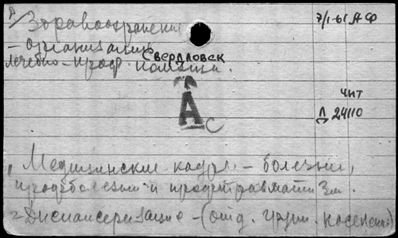 Здравоохранение
7/I-61 АФ
- организация
лечебно-проф. помощи.
Свердловск
А
С
чит
Л 24110
Медицинские кадры - болезни,
профболезни и профтравматизм.
2 Диспансеризация - (отд. групп. населения)